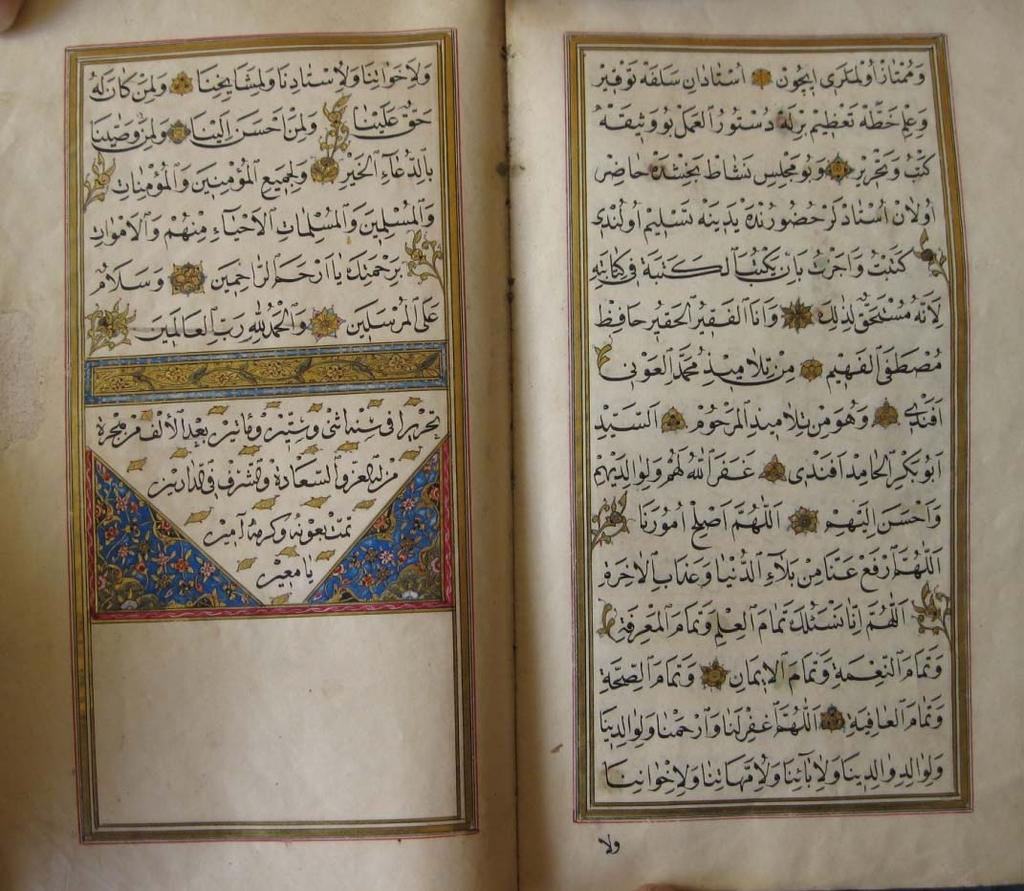 وَمُمْتَازْ اُولْمَلَرِى اِيچُونْ اُسْتَادَانِ سَلَفْدَه تَوْفِيرْ
وَعِلْمِ خَطَّه تَعْظِيمْ بِرْلَه دُسْتُورُ الْعَمَلْ بُو وَثِيقَه
كَتْبُ وَتَحْرِيرْ وَبُو مَجْلِسِ نَشَاطْ بَخْشِنْدَه حَاضِرْ
اُولَانْ اُسْتَادْلَرْ حُضُورُنْدَه يَدِينَه تَسْلِيمْ اُولُنْدِى
كَتَبْتُ وَاَجَزْتُ بِاَنْ يَكْتُبَ الْكَتَبَةَ فِى كِتَابَتِهِ
لِاَنَّهُ مُسْتَحِقٌّ لِذٰلِكَ وَاَنَا الْفَقِيرُ الْحَقِيرُ حَافِظْ
مُصْطَفَى الْفَهِيمْ مِنْ تَلَامِيذِ مُحَمَّدِ الْعَوْنِى
اَفَنْدِى وَهُوَ مِنْ تَلَامِيذِ الْمَرْحُومْ اَلسَّيِّدِ
اَبُو بَكْرِ الْحَامِدِ اَفَنْدِى غَفَرَ اللّٰهُ لَهُمْ وَلِوَالِدَيْهِمْ
وَاَحْسَنَ اِلَيْهِمْ اَللّٰهُمَّ اَصْلِحْ اُمُورَنَا
اَللّٰهُمَّ ارْفَعْ عَنَّا مِنْ بَلَاءِ الدُّنْيَا وَعَذَابِ الْاٰخِرَةِ
اَللّٰهُمَّ اِنَّا نَسْئَلُكَ تَمَامَ الْعِلْمِ وَتَمَامَ الْمَعْرِفَةِ
وَتَمَامَ النِّعْمَةِ وَتَمَامَ الْاِيمَانِ وَتَمَامَ الصِّحَّةِ
وَتَمَامَ الْعَافِيَةِ اَللّٰهُمَّ اغْفِرْ لَنَا وَارْحَمْنَا وَلِوَالِدِينَا
وَلِوَالِدِ وَالِدِينَا وَلِاٰبَائِنَا وَلِاُمَّهَاتِنَا وَلِاِخْوَانِنَا
ولا
وَلِاَخَوَاتِنَا وَلِاُسْتَادِنَا وَلِمَشَايِخِنَا وَلِمَنْ كَانَ لَهُ
حَقٌّ عَلَيْنَا وَلِمَنْ اَحْسَنَ اِلَيْنَا وَلِمَنْ وَصَّيْنَا
بِالدُّعَاءِ الْخَيْرِ وَلِجَمِيعِ الْمُؤْمِنِينَ وَالْمُؤْمِنَاتِ
وَالْمُسْلِمِينَ وَالْمُسْلِمَاتِ الْاَحْيَاءِ مِنْهُمْ وَالْاَمْوَاتِ
بِرَحْمَتِكَ يَا اَرْحَمَ الرَّاحِمِينَ وَسَلَامٌ
عَلَى الْمُرْسَلِينَ وَالْحَمْدُ لِلّٰهِ رَبِّ الْعَالَمِينَ
تحريرا فى سنة اثنى وستين ومأتين بعد الألف من هجرة
من له العز والسعادة والشرف فى الدارين
تمت بعونه وكرمه آمين
يا معين